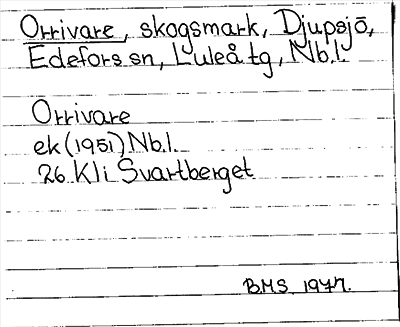 Orrivare, skogsmark, Djupsjö,
Edefors sn, Luleå tg, Nb.l.
Orrivare
ek (1951) Nb.l.
26 Kli Svartberget
BMS 1977.